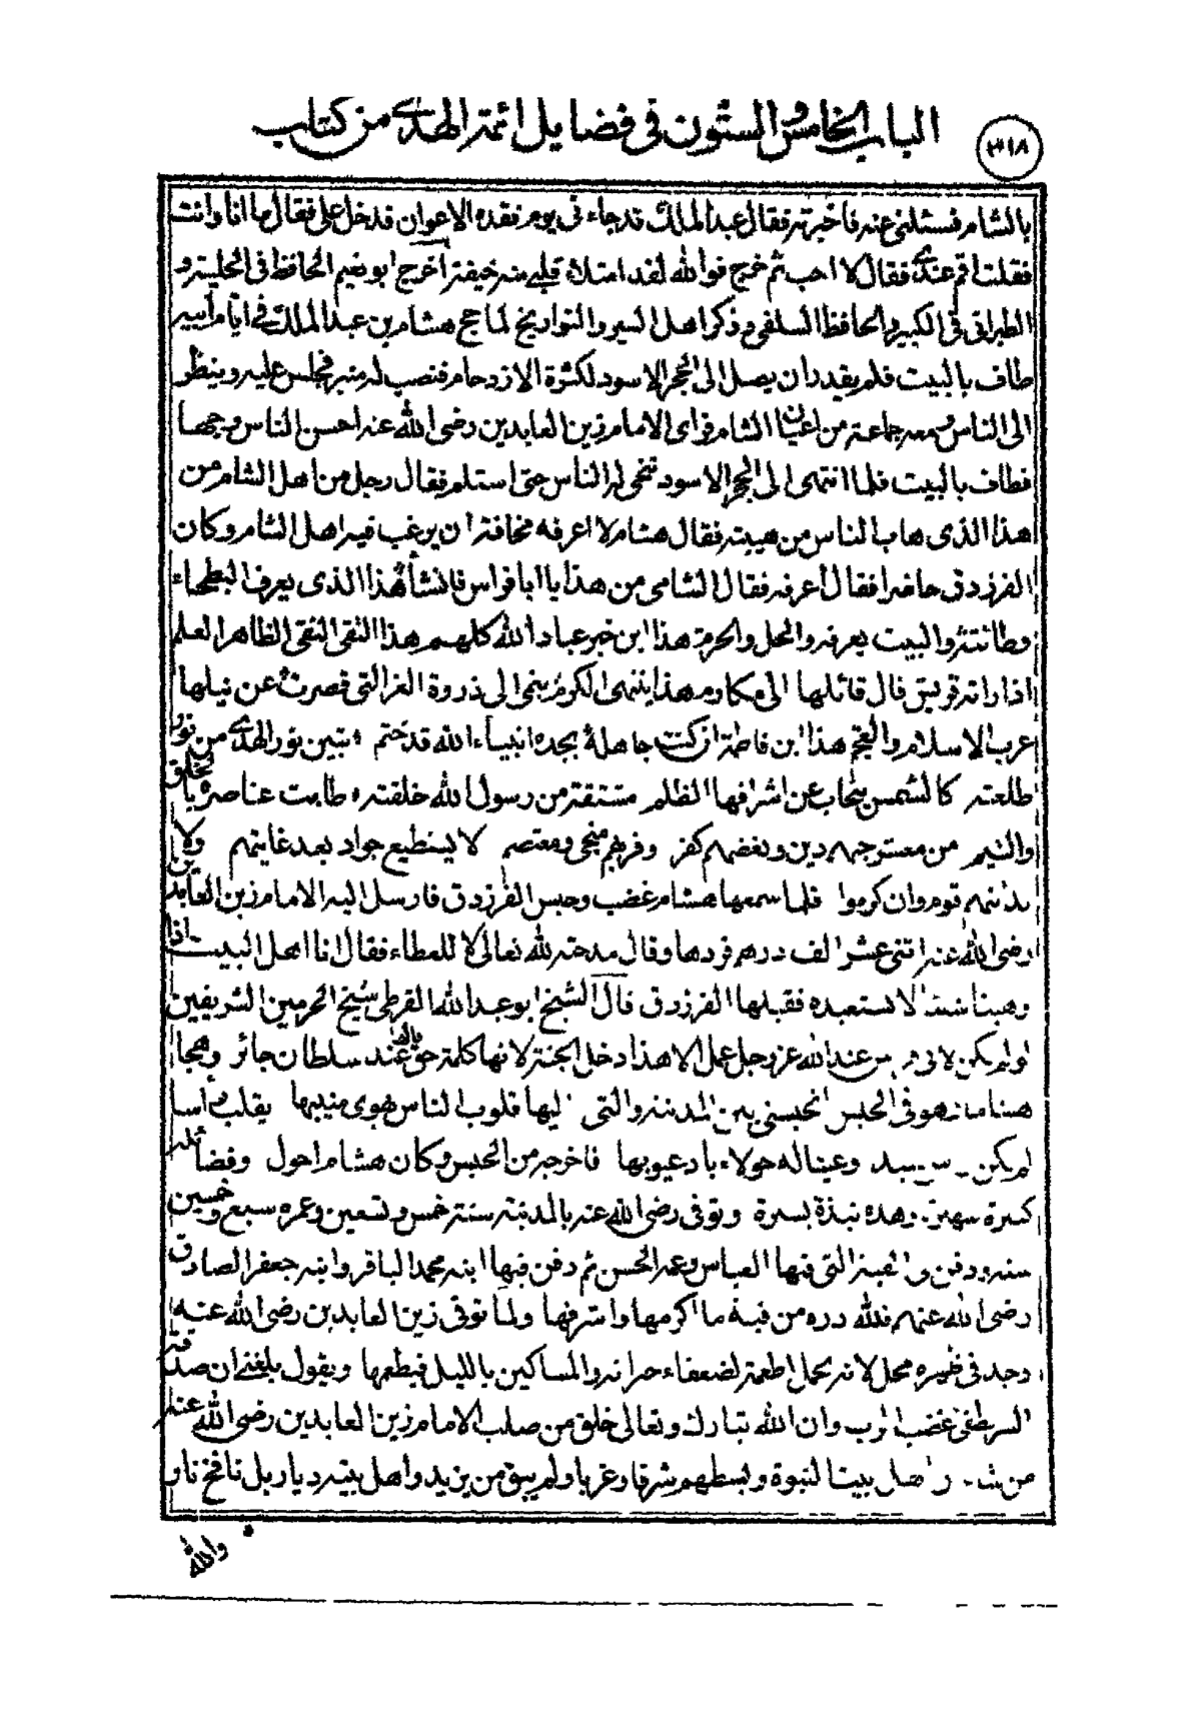 ٣١٨
الباب الخامس والستون في فضايل ائمة الهدى من كتاب
بالشام فسئلني عنه فاخبرته فقال عبد الملك قد جاءني يوم فقده الاعوان قد خل على فقال ما انا وانت
فقلت اقم عندى فقال لا احب ثم خرج فوالله لقد امتلاء قلبي منه خيفة اخرج ابو نعيم الحافظ في الحلية و
الطبراني في الكبير والحافظ السلفي وذكر اهل السير والتواريخ لما حج هشام بن عبد الملك في ايام ابيه
طاف بالبيت فلم يقدر ان يصل الى الحجر الاسود لكثرة الازدحام فنصب له منبر فجلس عليه وينظر
الى الناس ومعه جماعة من اعيان الشام فراى الامام زين العابدين رضى الله عنه احسن الناس وجها
فطاف بالبيت فلما انتهى الى الحجر الاسود تنحى له الناس حتى استلم فقال رجل من اهل الشام من
هذا الذى هاب الناس من هيبته فقال هشام لا اعرفه مخافة ان يرغب فيه اهل الشام وكان
الفرزدق حاضرا فقال اعرفه فقال الشامى من هذا يا ابا فراس فانشأ هذا الذى يعرف البطحاء
وطائته والبيت يعرفه والحل والحرم هذا ابن خير عباد الله كلهم هذا التقى النقى الطاهر العلم
اذا راته قريش قال قائلها الى مكارم هذا ينتهى الكرم ينمى الى ذروة العز التي قصرت عن نيلها
عرب الاسلام والعجم هذا ابن فاطمة ان كنت جاهلة بجده انبياء الله قد ختم يتبين نور الهدى من نور
طلعته كالشمس ينجاب عن اشراقها الظلم مشتقة من رسول الله خلقته طابت عناصره والخلق
والشيم من معشر حبهم دين وبغضهم كفر وقربهم منجى ومعتصم لا يستطيع جواد بعد غايتهم ولا
يدانيهم قوم وان كرموا فلما سمعها هشام غضب وحبس الفرزدق فارسل اليه الامام زين العابدين
رضى الله عنه اثنى عشر الف درهم فردها وقال مدحته لله تعالى لا للعطاء فقال انا اهل البيت اذا
وهبنا شيئا لا نستعيده فقبلها الفرزدق قال الشيخ ابو عبد الله القرطى شيخ الحرمين الشريفين
لو لم يكن لابى من عند الله عز وجل عمل الا هذا دخل الجنة لانها كلمة حق عند سلطان جائر وهجا
هشاما وهو في الحبس اتحبسني بين المدينة والتي اليها قلوب الناس هوى منيبها يقلب رأسا
لم يكن سيد وعينا له حولاء باد عيوبها فاخرجه من الحبس وكان هشام احول وفضائله
كثيرة وهذه نبذة يسيرة وتوفى رضى الله عنه بالمدينة سنة خمس وتسعين وعمره سبع وخمسين
سنة ودفن في القبة التي فيها العباس وعمه الحسن ثم دفن فيها ابنه محمد الباقر وابنه جعفر الصادق
رضى الله عنهم فلله دره من قبة ما اكرمها واشرفها ولما توفى زين العابدين رضى الله عنه
وجد في ظهره محل لانه يحمل اطعمة لضعفاء جيرانه والمساكين بالليل فيطعمها ويقول بلغني ان صدقة
السر تطفئ غضب الرب وان الله تبارك وتعالى خلق من صلب الامام زين العابدين رضى الله عنه
من شاء اهل بيت النبوة وبسطهم شرقا وغربا ولم يبق من يزيد واهل بيته ديار بل نافخ نار
والله